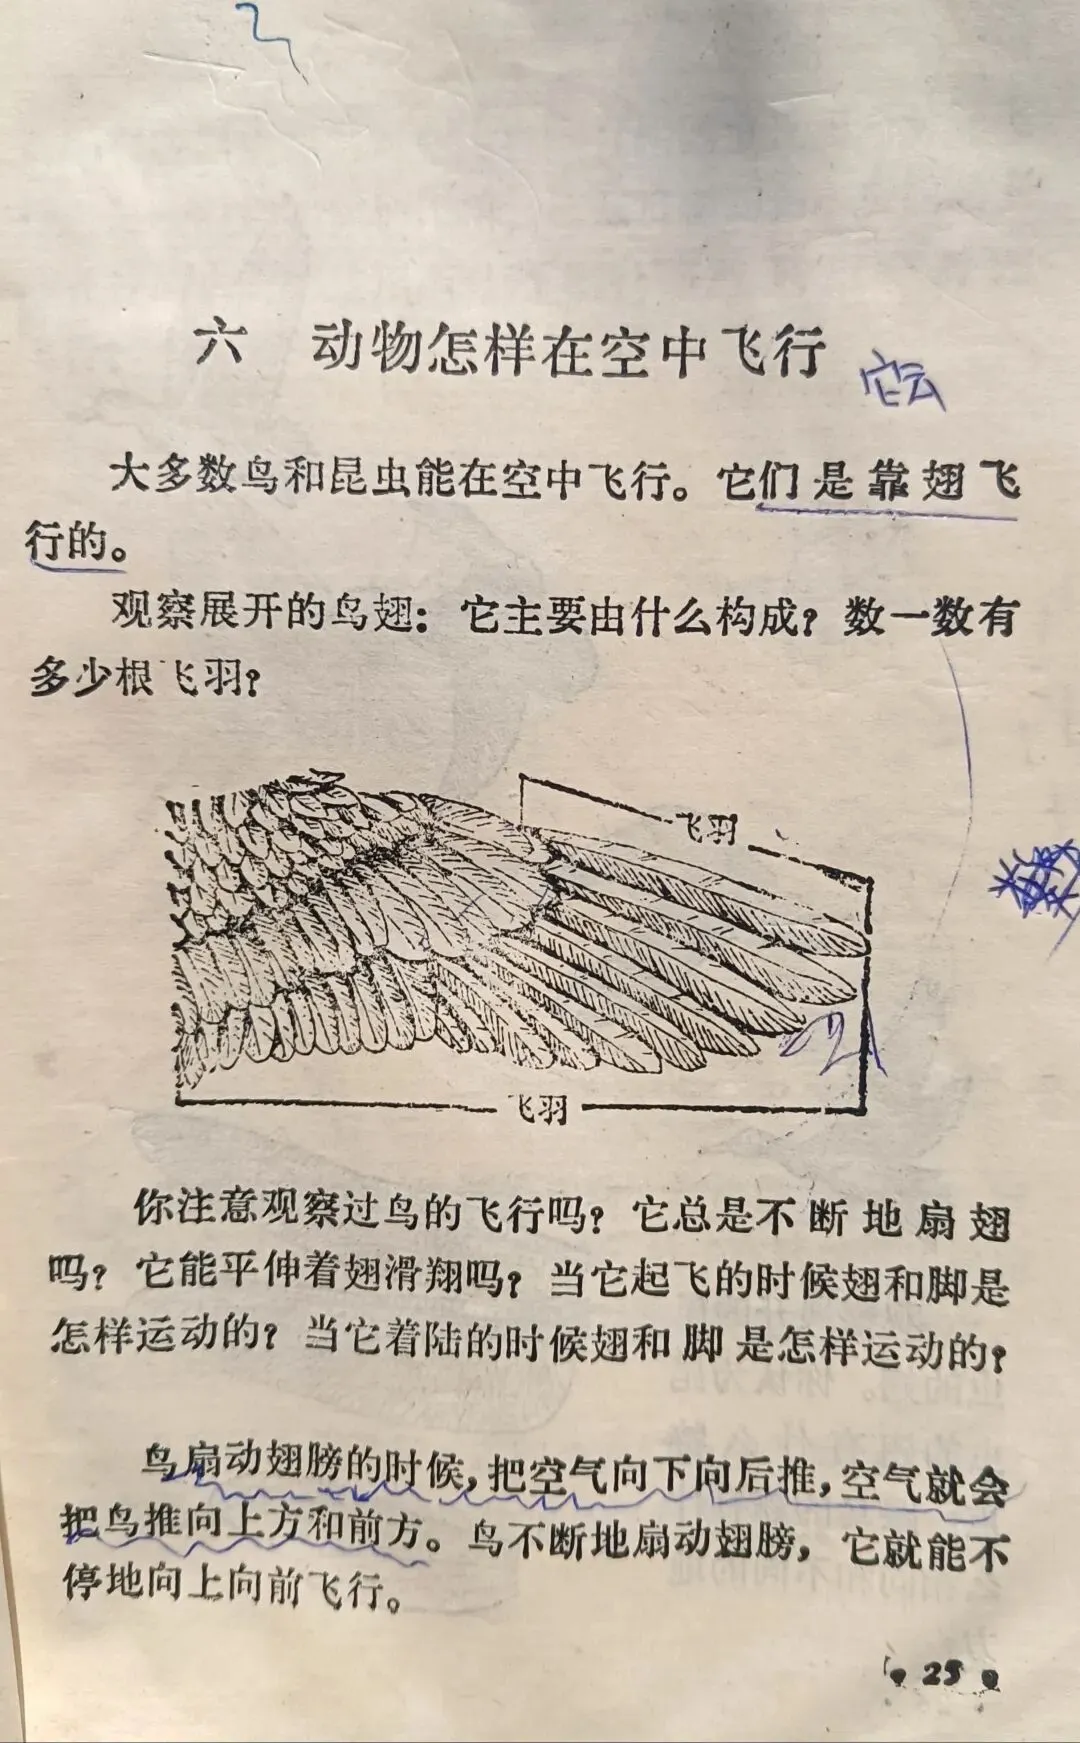 六 动物怎样在空中飞行
它云
大多数鸟和昆虫能在空中飞行。它们是靠翅飞
行的。
观察展开的鸟翅：它主要由什么构成？数一数有
多少根飞羽？
飞羽
21
飞羽
你注意观察过鸟的飞行吗？它总是不断地扇翅
吗？它能平伸着翅滑翔吗？当它起飞的时候翅和脚是
怎样运动的？当它着陆的时候翅和脚是怎样运动的？
鸟扇动翅膀的时候，把空气向下向后推，空气就会
把鸟推向上方和前方。鸟不断地扇动翅膀，它就能不
停地向上向前飞行。
25